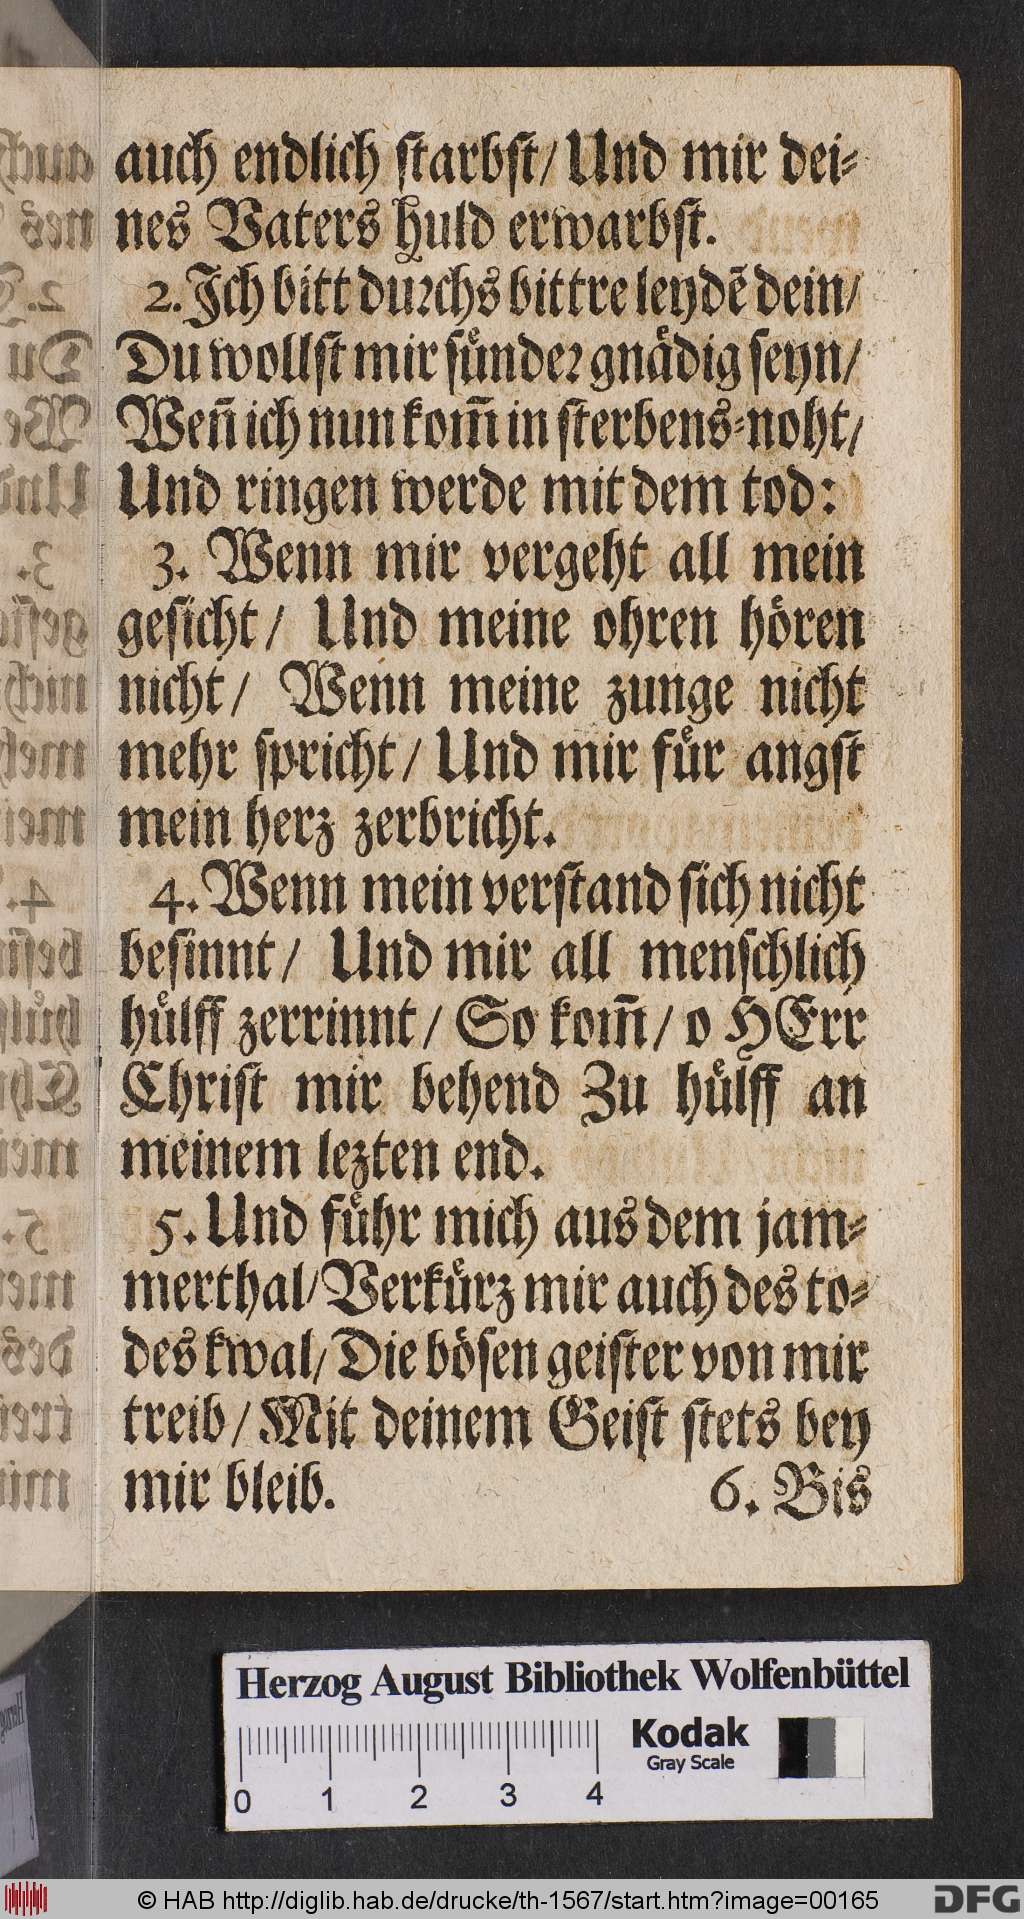 auch endlich starbst/ Und mir dei⸗
nes Vaters huld erwarbst.
2. Ich bitt durchs bittre leydē dein/
Du wollst mir sünder gnädig seyn/
Weñ ich nun kom̃ in sterbens⸗noht/
Und ringen werde mit dem tod:
3. Wenn mir vergeht all mein
gesicht/ Und meine ohren hören
nicht/ Wenn meine zunge nicht
mehr spricht/ Und mir für angst
mein herz zerbricht.
4. Wenn mein verstand sich nicht
besinnt/ Und mir all menschlich
hülff zerrinnt/ So kom̃/ o HErr
Christ mir behend Zu hülff an
meinem lezten end.
5. Und führ mich aus dem jam⸗
merthal/ Verkürz mir auch des to⸗
des kwal/ Die bösen geister von mir
treib/ Mit deinem Geist stets bey
mir bleib.
6. Bis
Herzog August Bibliothek Wolfenbüttel
Kodak
Gray Scale
0 1 2 3 4
© HAB http://diglib.hab.de/drucke/th-1567/start.htm?image=00165
DFG